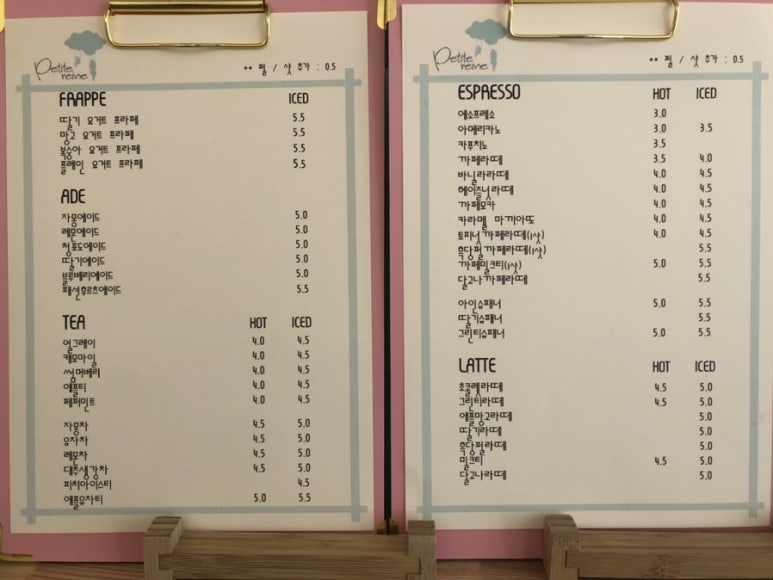 Petite reine
** 펄 / 샷 추가 : 0.5
FRAPPE ICED
딸기 요거트 프라페 5.5
망고 요거트 프라페 5.5
복숭아 요거트 프라페 5.5
플레인 요거트 프라페 5.5
ADE
자몽에이드 5.0
레몬에이드 5.0
청포도에이드 5.0
딸기에이드 5.0
블루베리에이드 5.0
패션후르츠에이드 5.5
TEA HOT ICED
얼그레이 4.0 4.5
캐모마일 4.0 4.5
썸머베리 4.0 4.5
애플티 4.0 4.5
페퍼민트 4.0 4.5
자몽차 4.5 5.0
유자차 4.5 5.0
레몬차 4.5 5.0
대추생강차 4.5 5.0
피치아이스티 4.5
애플유자티 5.0 5.5
Petite reine
** 펄 / 샷 추가 : 0.5
ESPRESSO HOT ICED
에소프레소 3.0
아메리카노 3.0 3.5
카푸치노 3.5
까페라떼 3.5 4.0
바닐라라떼 4.0 4.5
헤이즐넛라떼 4.0 4.5
까페모카 4.0 4.5
카라멜 마끼아또 4.0 4.5
토피넛 까페라떼(1샷) 4.0 4.5
흑당펄 까페라떼(1샷) 5.5
까페밀크티(1샷) 5.0 5.5
달고나 까페라떼 5.5
아인슈패너 5.0 5.5
딸기슈패너 5.5
그린티슈패너 5.0 5.5
LATTE HOT ICED
초콜렛라떼 4.5 5.0
그린티라떼 4.5 5.0
애플망고라떼 5.0
딸기라떼 5.0
흑당펄라떼 5.0
밀크티 4.5 5.0
달고나라떼 5.0